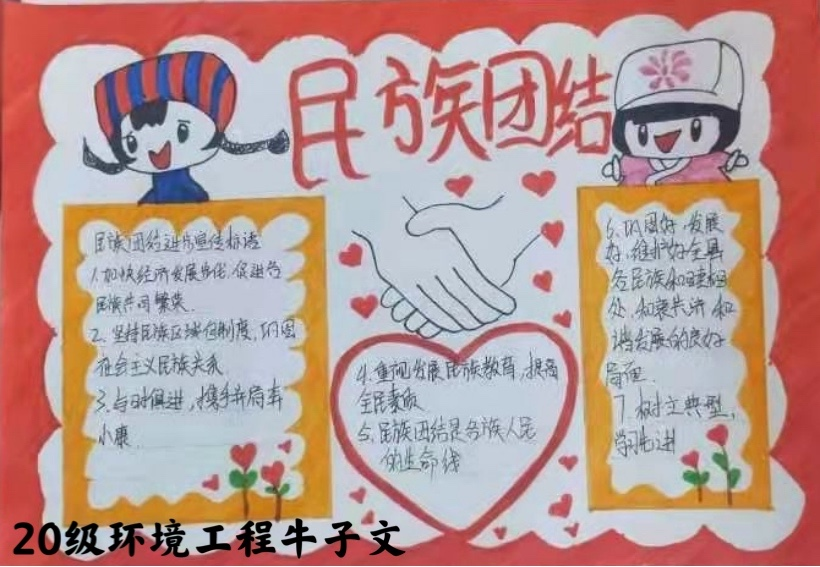 民族团结
民族团结进步宣传标语
1.加快经济发展步伐,促进各
民族共同繁荣.
2.坚持民族区域自治制度,巩固
社会主义民族关系.
3.与时俱进,携手并肩奔
小康.
4.重视发展民族教育,提高
全民素质
5.民族团结是各族人民
的生命线
6.巩固好,发展
好,维护好全县
各民族和睦相
处,和衷共济,和
谐发展的良好
局面.
7.树立典型,
学习先进
20级环境工程牛子文